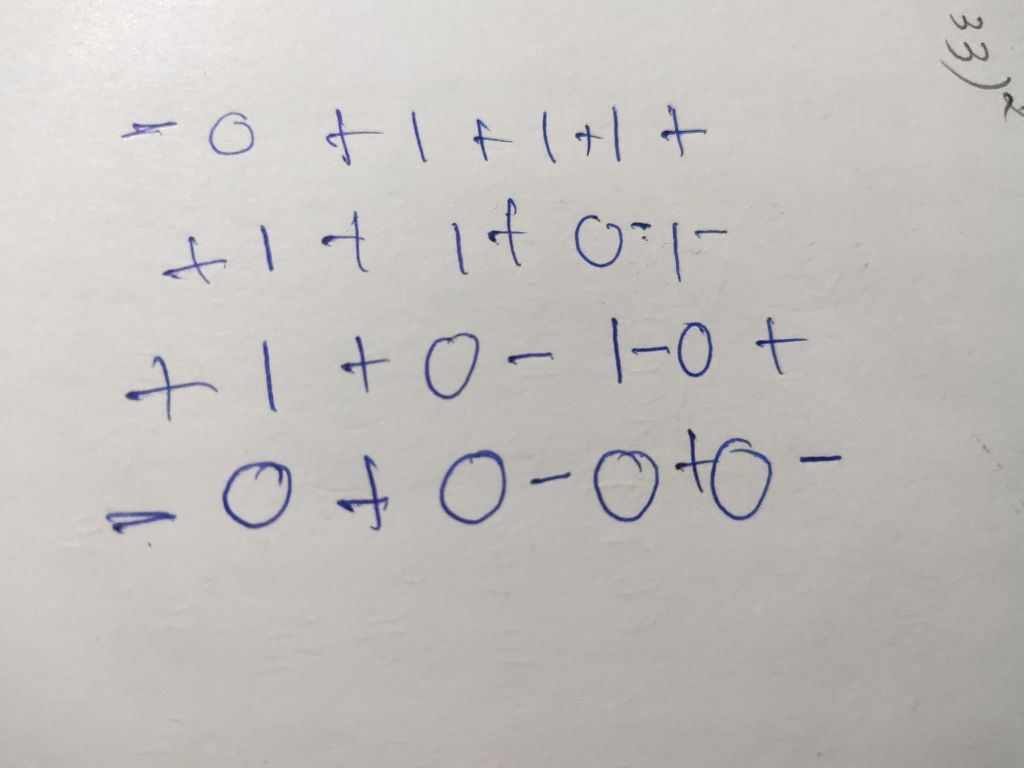 - 0 + 1 + 1 + 1 +
+ 1 + 1 + 0 - 1 -
+ 1 + 0 - 1 - 0 +
- 0 + 0 - 0 + 0 -
33)²